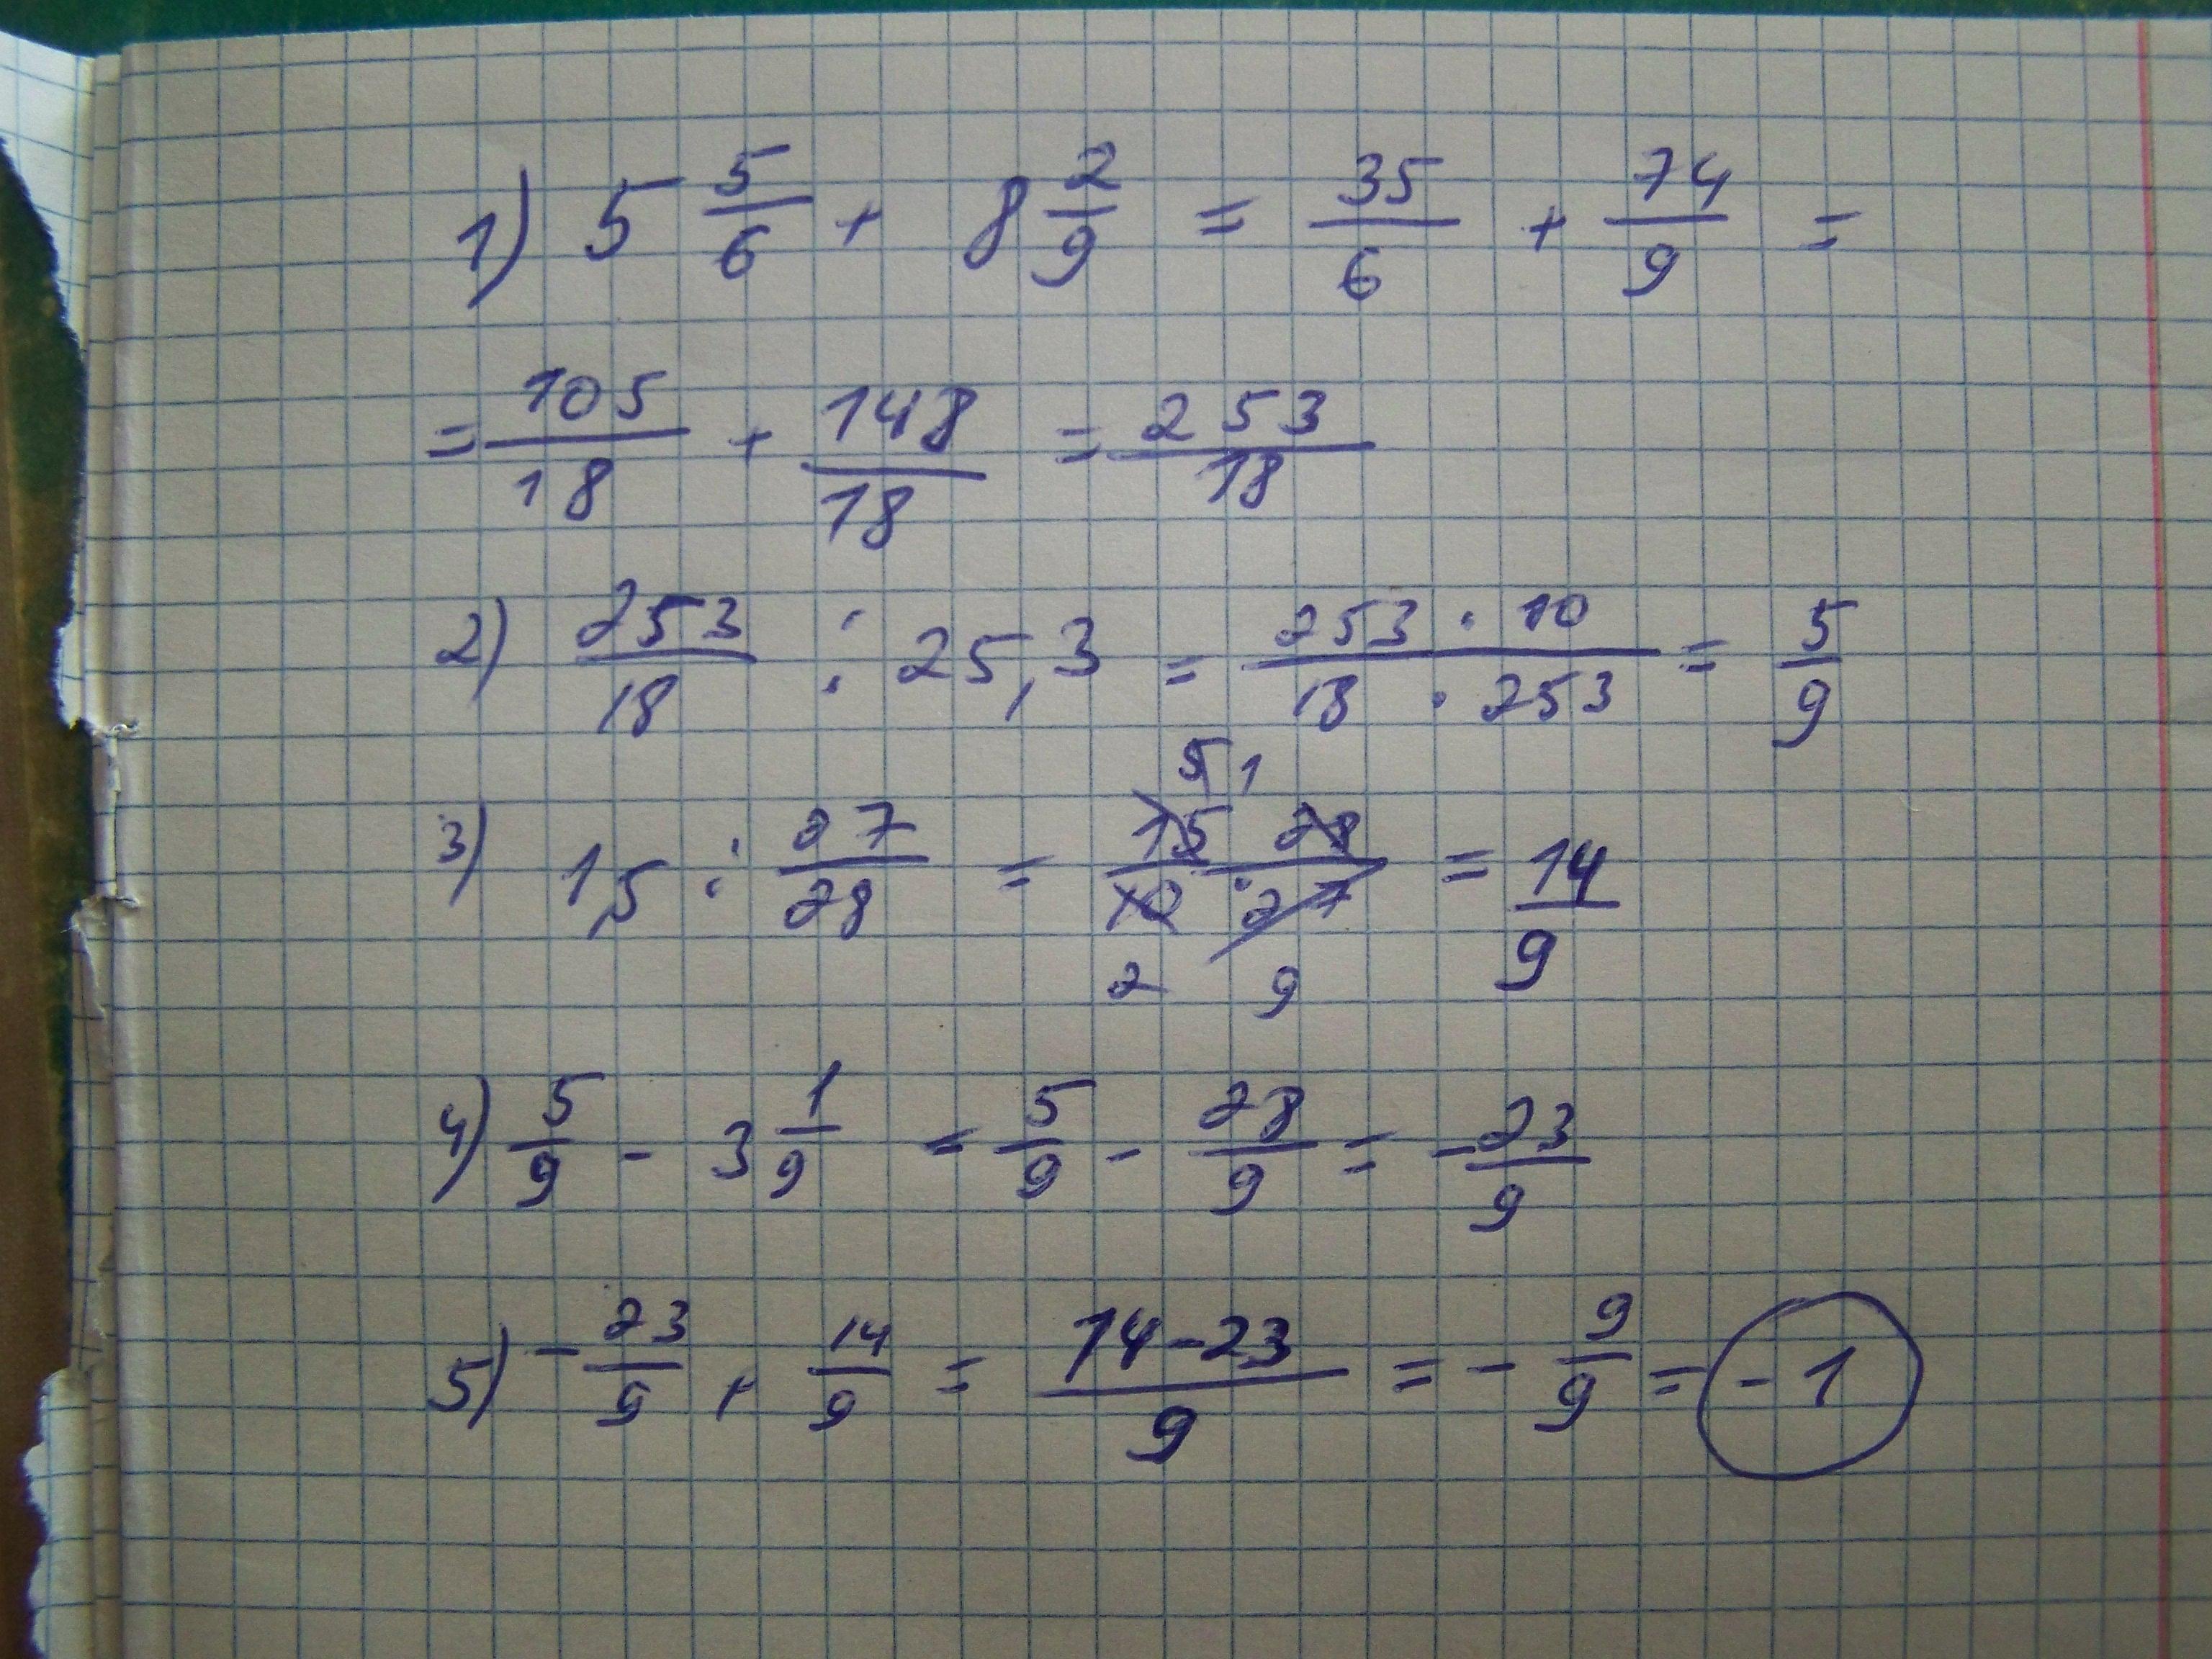 1) 5 5/6 + 8 2/9 = 35/6 + 74/9 =
= 105/18 + 148/18 = 253/18
2) 253/18 : 25,3 = 253 · 10 / 18 · 253 = 5/9
5 1
3) 1,5 : 27/28 = 15/10 · 28/27 = 14/9
2 9
4) 5/9 - 3 1/9 = 5/9 - 28/9 = - 23/9
5) - 23/9 + 14/9 = 14-23/9 = - 9/9 = - 1